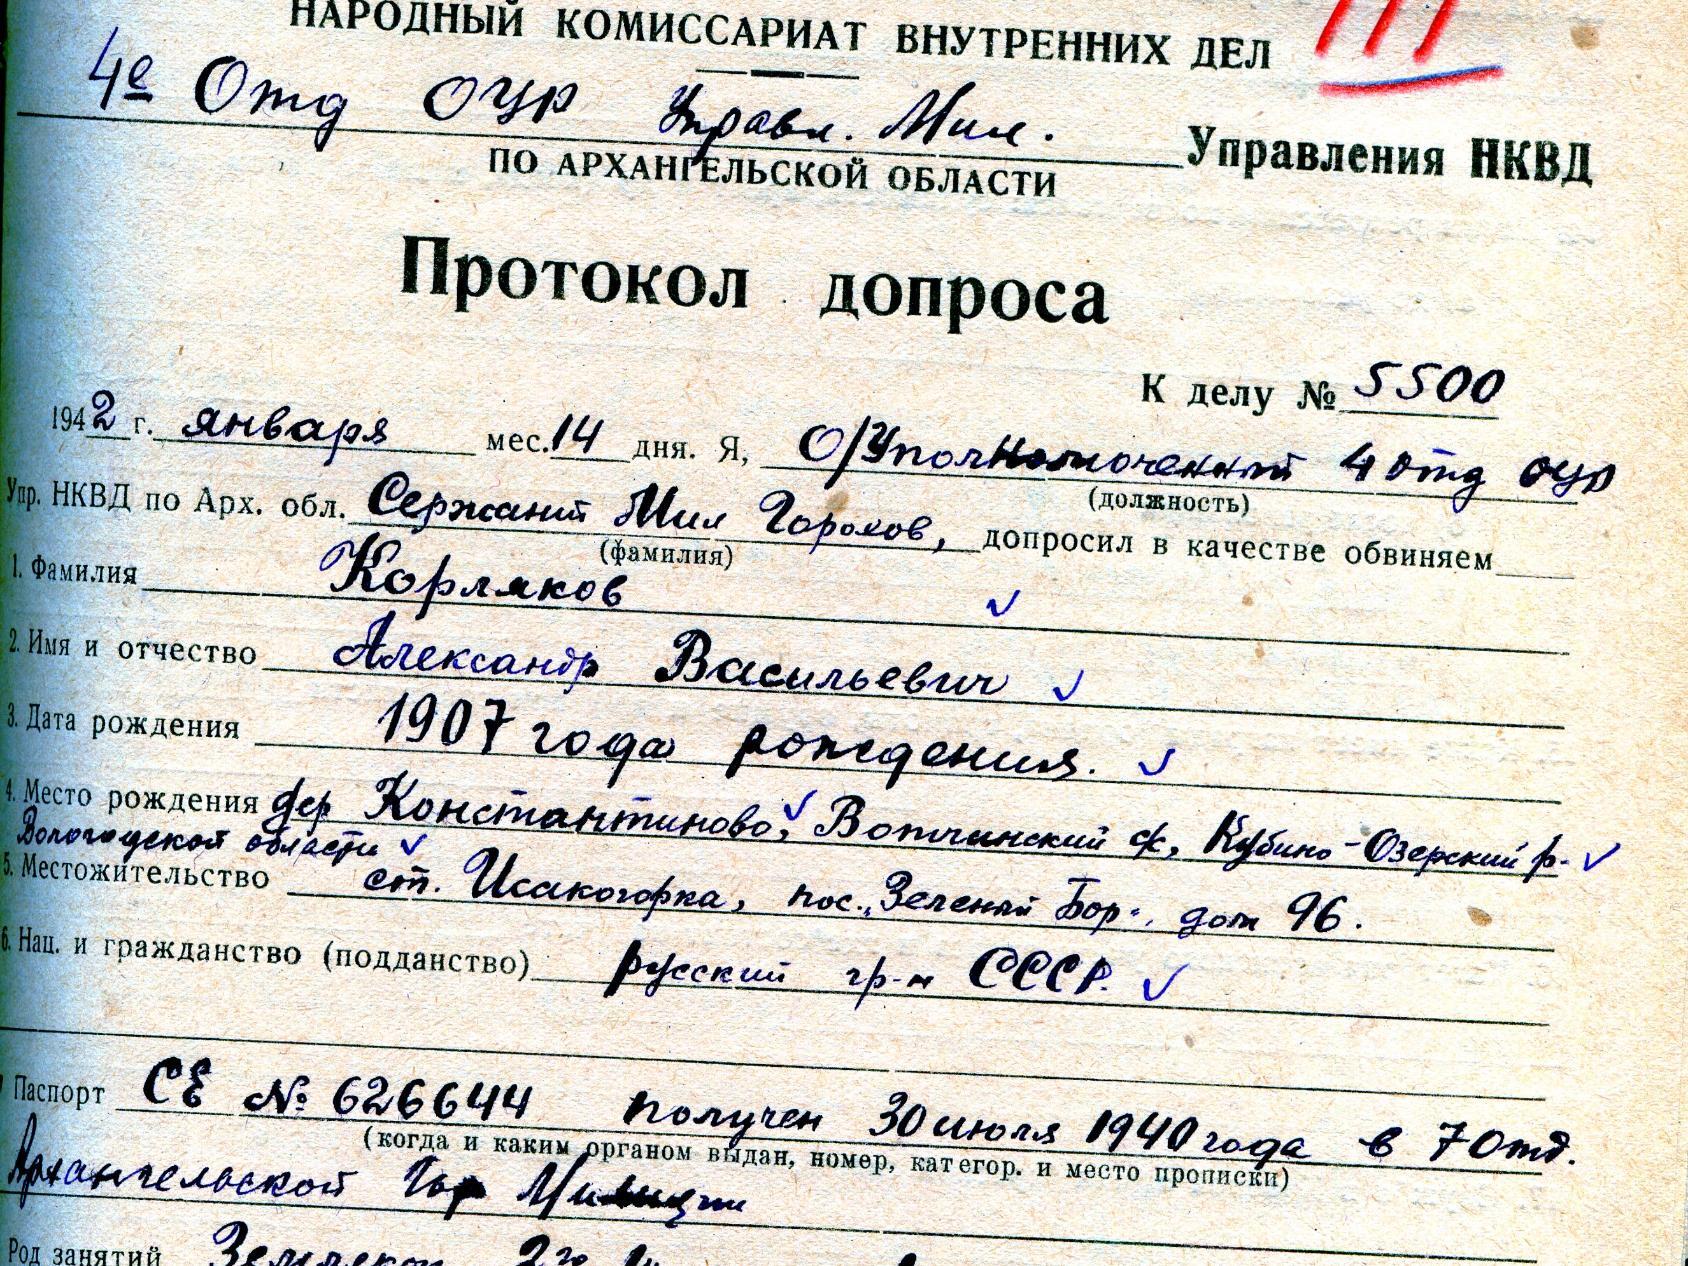 НАРОДНЫЙ КОМИССАРИАТ ВНУТРЕННИХ ДЕЛ
4е Отд ОУР Управл. Мил. Управления НКВД
ПО АРХАНГЕЛЬСКОЙ ОБЛАСТИ
Протокол допроса
К делу № 5500
1942 г. января мес. 14 дня. Я, О/Уполномоченный 4 отд ОУР
(должность)
Упр. НКВД по Арх. обл. Сержант Мил Горохов, допросил в качестве обвиняем
(фамилия)
1. Фамилия Корляков
2. Имя и отчество Александр Васильевич
3. Дата рождения 1907 года рождения.
4. Место рождения дер Константиново, Вотчинский с/с, Кубино-Озерский р-
Вологодской области
5. Местожительство ст. Исакогорка, пос. „Зеленый Бор", дом 96.
6. Нац. и гражданство (подданство) русский гр-н СССР.
Паспорт СЕ № 626644 получен 30 июля 1940 года в 7 Отд.
(когда и каким органом выдан, номер, категор. и место прописки)
Архангельской Гор Милиции
Род занятий